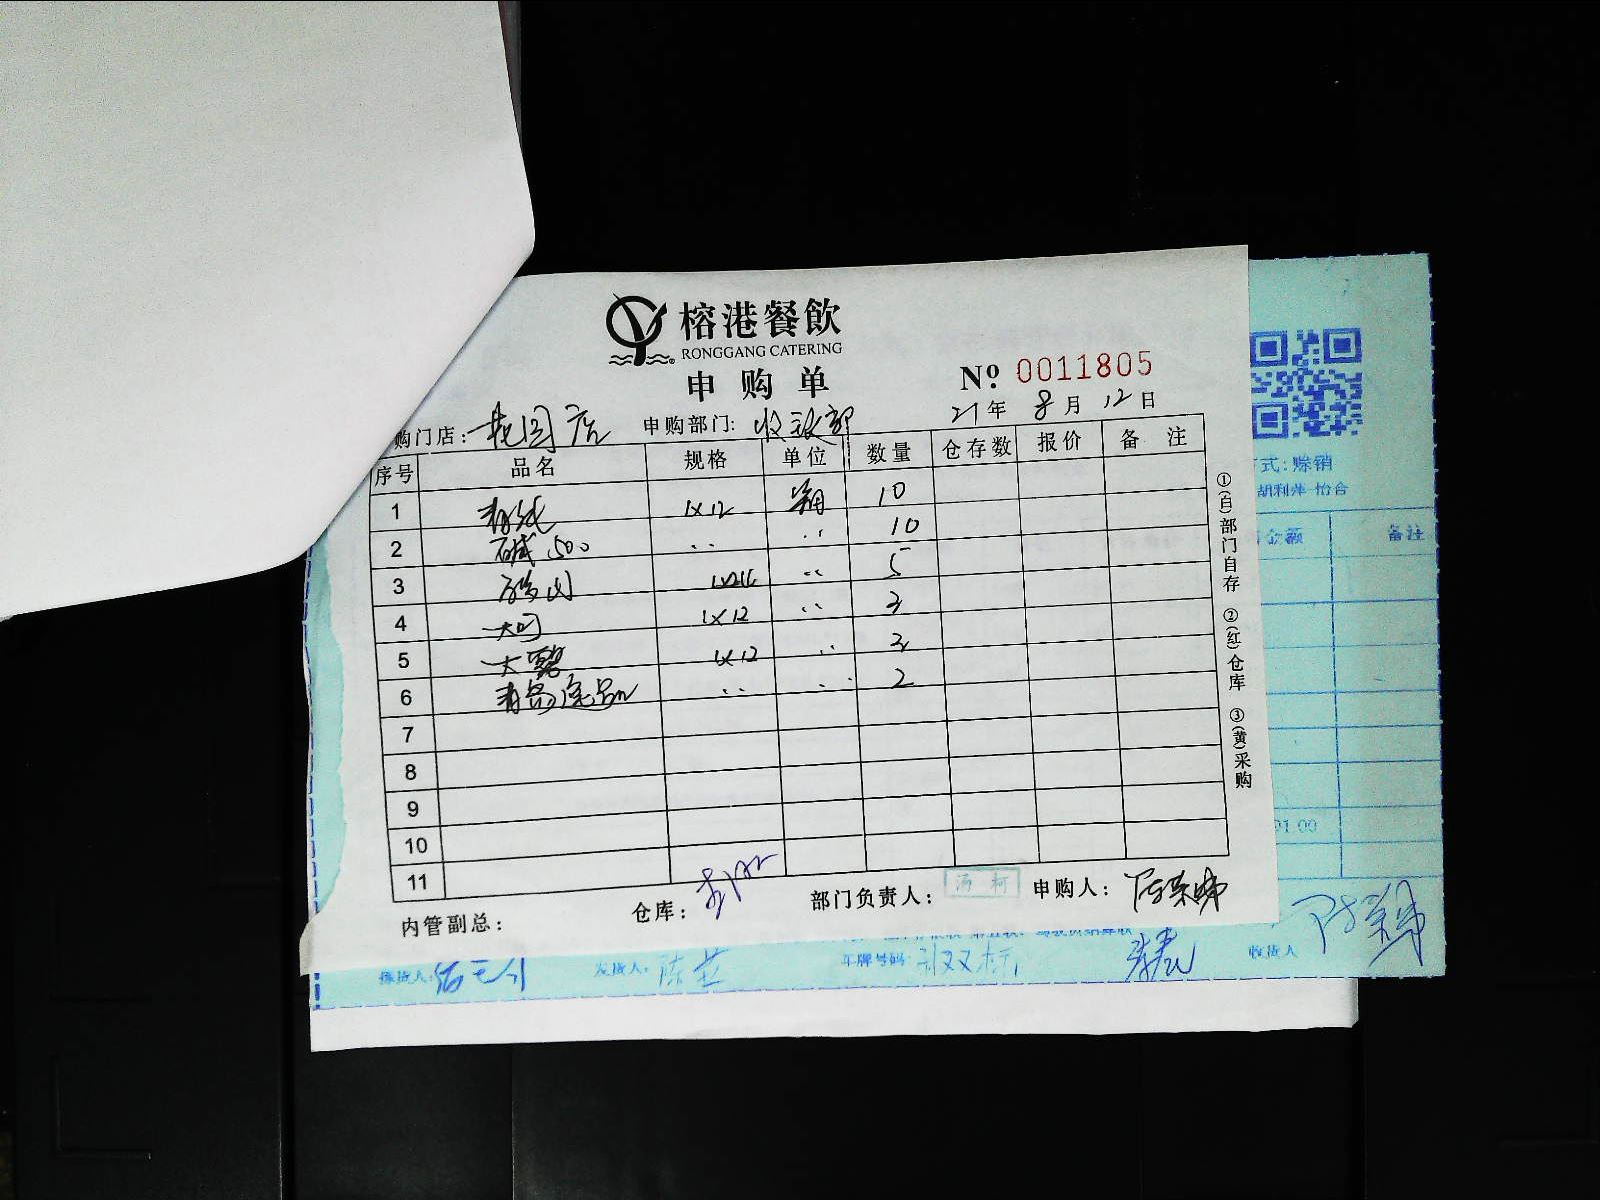 榕港餐飲
RONGGANG CATERING
申购单
№ 0011805
购门店: 桃园店 申购部门: 收银部 21年 8月 12日
序号 品名 规格 单位 数量 仓存数 报价 备注
1 青纯 1×12 箱 10
2 碱 500 .. .. 10
3 1×24 .. 5
4 大可 1×12 .. 3
5 大雪碧 1×12 .. 3
6 青岛逸品 .. .. 2
7
8
9
10
11
内管副总: 仓库: 部门负责人: 汤柯 申购人:
①(白)部门自存 ②(红)仓库 ③(黄)采购
式: 赊销
胡利萍 怡合
金额 备注
91.00
发货人: 陈芸 车牌号码: 收货人